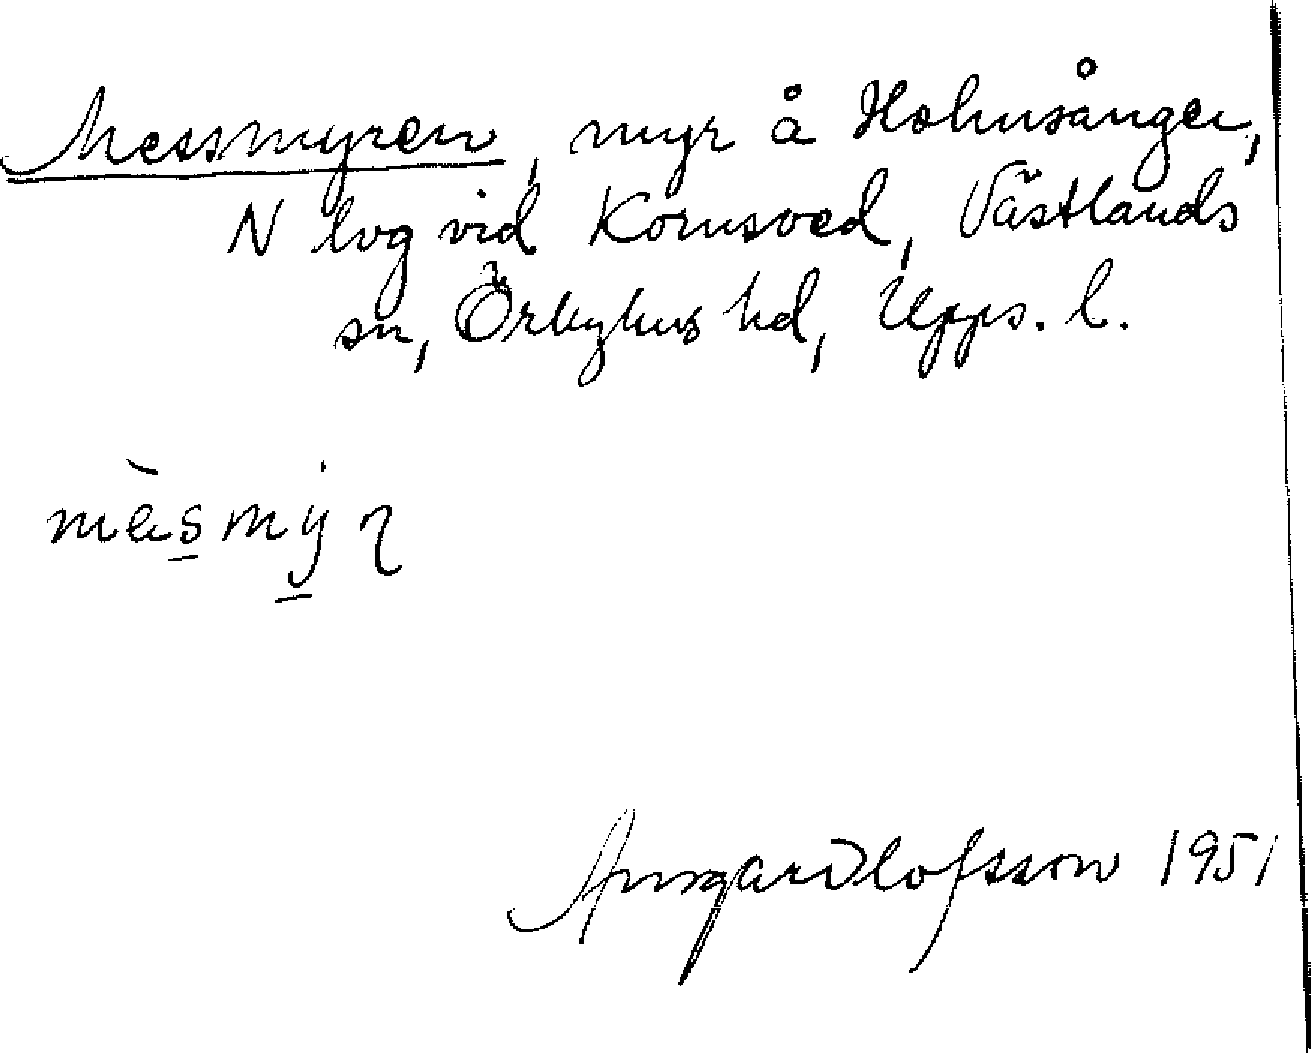 Messmyren, myr å Holmsånger,
N lvg vid Kornsved, Västlands
sn, Örbyhus hd, Upps. l.
mæ̀s̱mẏ̱ɿ
Ansgar Olofsson 1951